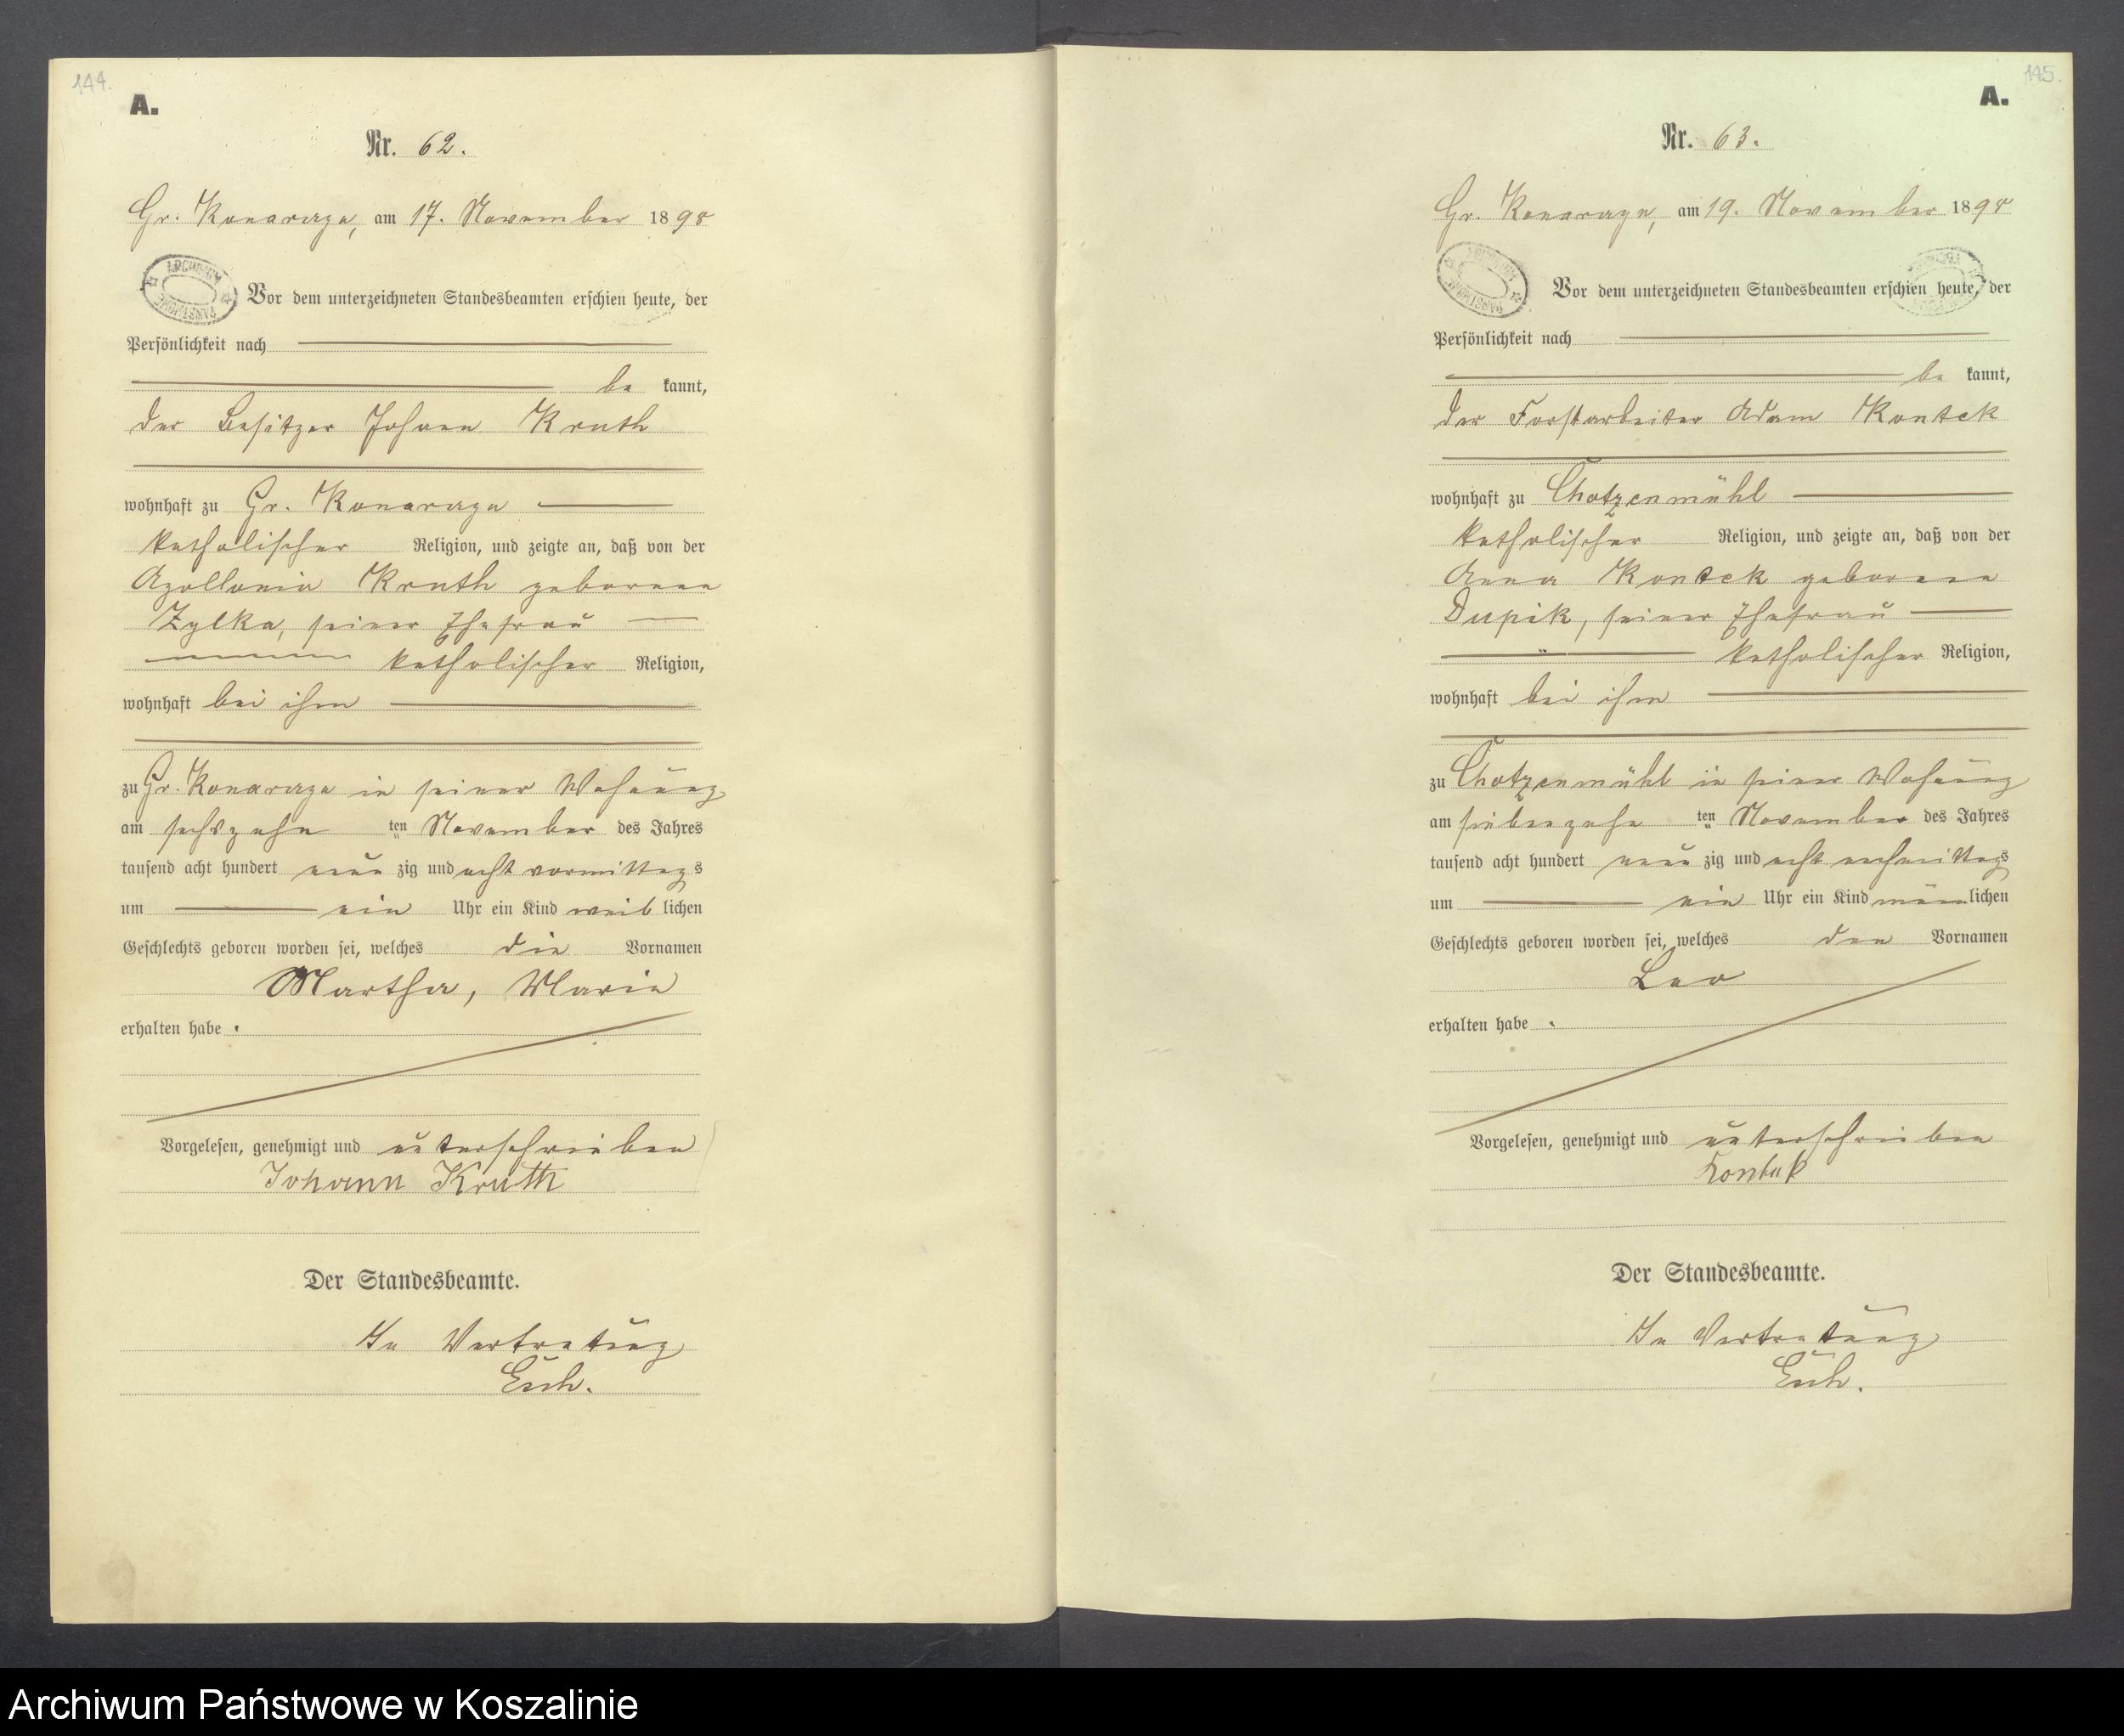 144.
A.
Nr. 62.
Gr. Konarczyn, am 17. November 1898
Vor dem unterzeichneten Standesbeamten erschien heute, der
Persönlichkeit nach
be kannt,
der Besitzer Johann Kruth
wohnhaft zu Gr. Konarczyn
katholischer Religion, und zeigte an, daß von der
Apollonia Kruth geborene
Zylka, seiner Ehefrau
katholischer Religion,
wohnhaft bei ihm
zu Gr. Konarczyn in seiner Wohnung
am sechszehn ten November des Jahres
tausend acht hundert neun zig und acht vormittags
um ein Uhr ein Kind weib lichen
Geschlechts geboren worden sei, welches die Vornamen
Martha, Marie
erhalten habe.
Vorgelesen, genehmigt und unterschrieben
Johann Kruth
Der Standesbeamte.
In Vertretung
145.
A.
Nr. 63.
Gr. Konarczyn, am 19. November 1898
Vor dem unterzeichneten Standesbeamten erschien heute, der
Persönlichkeit nach
be kannt,
der Forstarbeiter Adam Kontek
wohnhaft zu Chotzenmühl
katholischer Religion, und zeigte an, daß von der
Anna Kontek geborene
Dupik, seiner Ehefrau
katholischer Religion,
wohnhaft bei ihm
zu Chotzenmühl in seiner Wohnung
am siebenzehn ten November des Jahres
tausend acht hundert neun zig und acht nachmittags
um ein Uhr ein Kind männlichen
Geschlechts geboren worden sei, welches den Vornamen
Leo
erhalten habe.
Vorgelesen, genehmigt und unterschrieben
Kontek
Der Standesbeamte.
In Vertretung
Archiwum Państwowe w Koszalinie